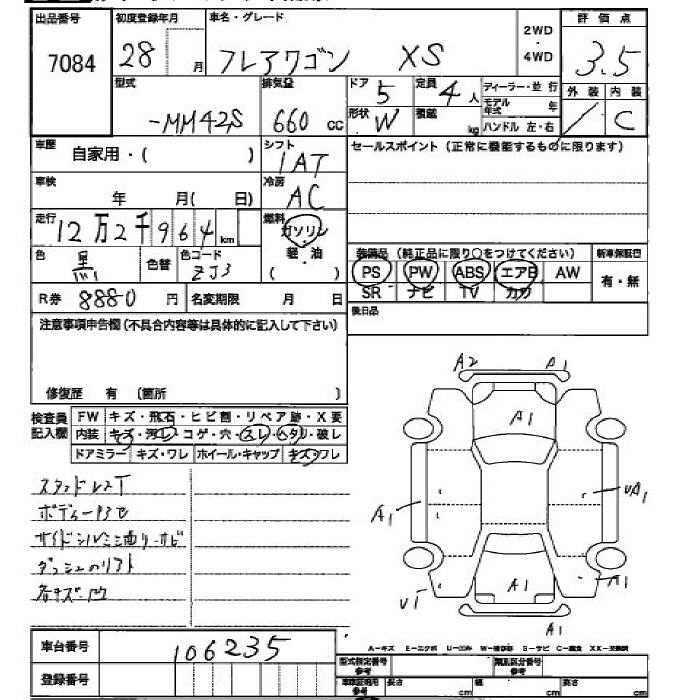 出品番号 初度登録年月 車名・グレード 2WD・4WD 評価点
7084 28 月 フレアワゴン XS 3.5
型式 排気量 ドア 5 定員 4人 ディーラー・並行 外装 内装
-MM42S 660 cc 形状 W 積載 kg モデル年式 年 ハンドル 左・右 / C
車歴 自家用・( ) シフト 1AT セールスポイント(正常に機能するものに限ります)
車検 年 月( 日) 冷房 AC
走行 12万2千964km 燃料 ガソリン
色 黒 色替 色コード ZJ3 軽・油 ( )
装備品(純正品に限り○をつけてください) 新車保証書
PS PW ABS エアB AW 有・無
SR ナビ TV カワ
R券 8880 円 名変期限 月 日 後日品
注意事項申告欄(不具合内容等は具体的に記入して下さい)
修復歴 有 (箇所 )
検査員記入欄 FW キズ・飛石・ヒビ割・リペア跡・X要
内装 キズ・汚レ・コゲ・穴・スレ・ヘタリ・破レ
ドアミラー キズ・ワレ ホイール・キャップ キズ・ワレ
スタッドレスT
ダッシュのリフト
各キズ・凹
A2 P1
A1
A1 UA1
A1 A1
U1
A1
車台番号 106235
A-キズ E-エクボ U-凹み W-補修跡 S-サビ C-腐食 XX-交換済
登録番号 型式指定番号 類別区分番号
長さ cm 幅 cm 高さ cm